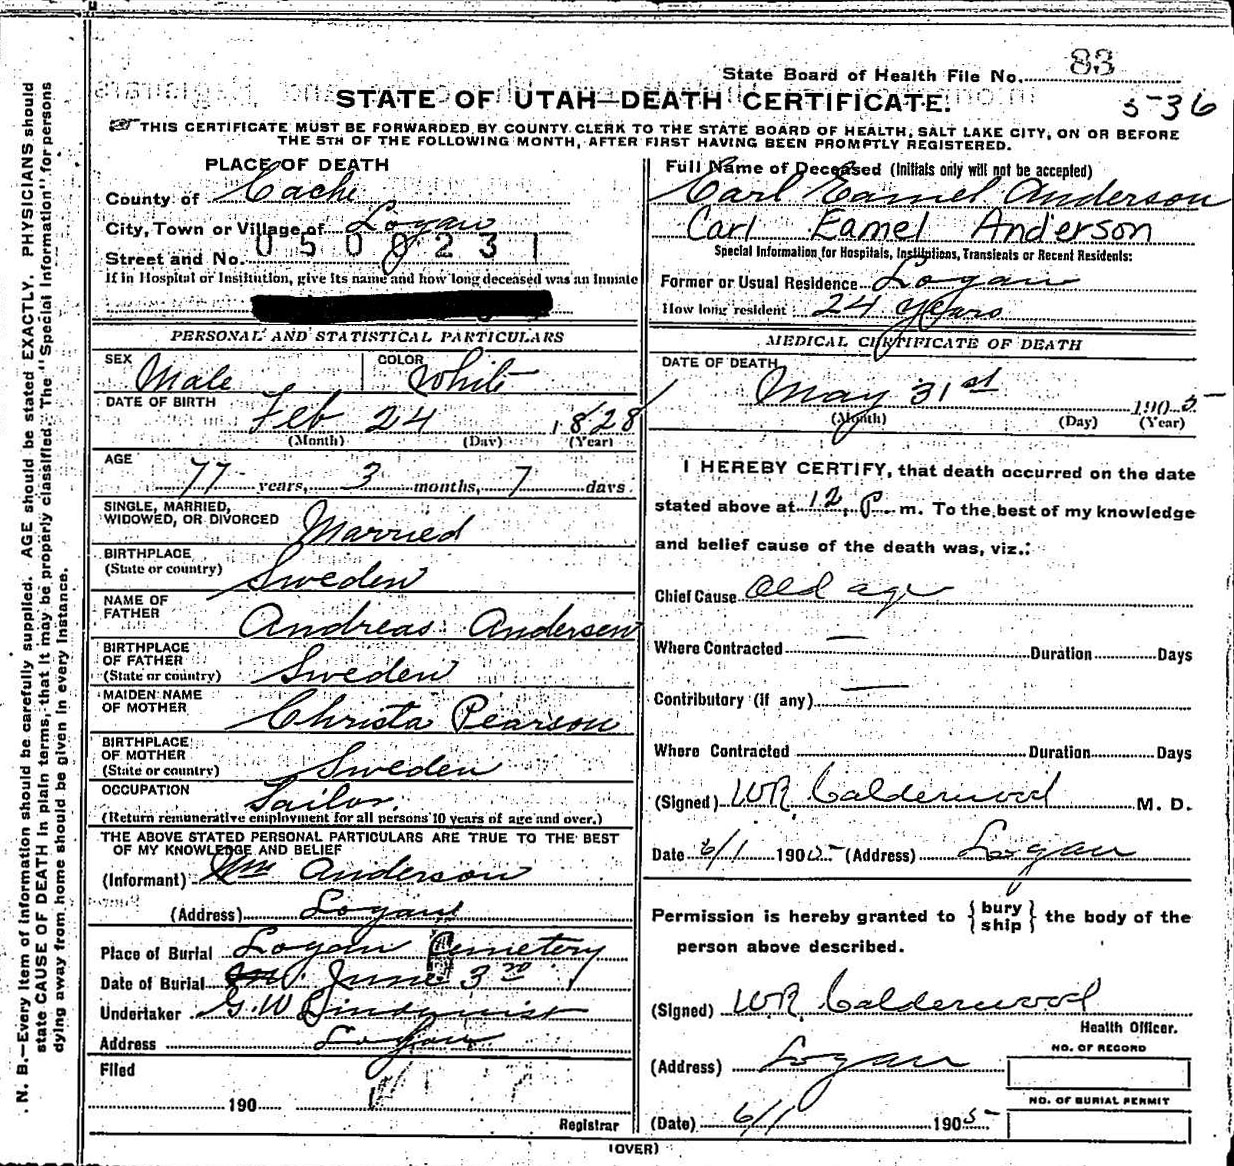 State Board of Health File No. 83
STATE OF UTAH—DEATH CERTIFICATE.
5-36
THIS CERTIFICATE MUST BE FORWARDED BY COUNTY CLERK TO THE STATE BOARD OF HEALTH, SALT LAKE CITY, ON OR BEFORE
THE 5TH OF THE FOLLOWING MONTH, AFTER FIRST HAVING BEEN PROMPTLY REGISTERED.
PLACE OF DEATH
County of Cache
City, Town or Village of Logan
Street and No. 0500231
If in Hospital or Institution, give its name and how long deceased was an inmate
PERSONAL AND STATISTICAL PARTICULARS
SEX Male COLOR White
DATE OF BIRTH Feb 24 1828
(Month) (Day) (Year)
AGE
77 years, 3 months, 7 days
SINGLE, MARRIED,
WIDOWED, OR DIVORCED Married
BIRTHPLACE
(State or country) Sweden
NAME OF
FATHER Andreas Andersen
BIRTHPLACE
OF FATHER
(State or country) Sweden
MAIDEN NAME
OF MOTHER Christa Pearson
BIRTHPLACE
OF MOTHER
(State or country) Sweden
OCCUPATION
(Return remunerative employment for all persons 10 years of age and over.)
THE ABOVE STATED PERSONAL PARTICULARS ARE TRUE TO THE BEST
OF MY KNOWLEDGE AND BELIEF
(Informant) Wm Anderson
(Address) Logan
Place of Burial Logan Cemetery
Date of Burial June 3rd
Undertaker G.W Lindquist
Address Logan
Filed
190
Registrar
Full Name of Deceased (Initials only will not be accepted)
Carl Eamel Anderson
Carl Eamel Anderson
Special Information for Hospitals, Institutions, Transients or Recent Residents:
Former or Usual Residence Logan
How long resident 24 Years
MEDICAL CERTIFICATE OF DEATH
DATE OF DEATH
May 31st 1905
(Month) (Day) (Year)
I HEREBY CERTIFY, that death occurred on the date
stated above at 12 P. m. To the best of my knowledge
and belief cause of the death was, viz.:
Chief Cause Old age
Where Contracted — Duration Days
Contributory (if any) —
Where Contracted Duration Days
(Signed) WR Calderwood M. D.
Date 6/1 1905 (Address) Logan
Permission is hereby granted to {bury
ship} the body of the
person above described.
(Signed) WR Calderwood
Health Officer.
(Address) Logan
NO. OF RECORD
NO. OF BURIAL PERMIT
(Date) 6/1 1905
(OVER)
N. B.—Every item of information should be carefully supplied. AGE should be stated EXACTLY. PHYSICIANS should
state CAUSE OF DEATH in plain terms, that it may be properly classified. The "Special Information" for persons
dying away from home should be given in every instance.